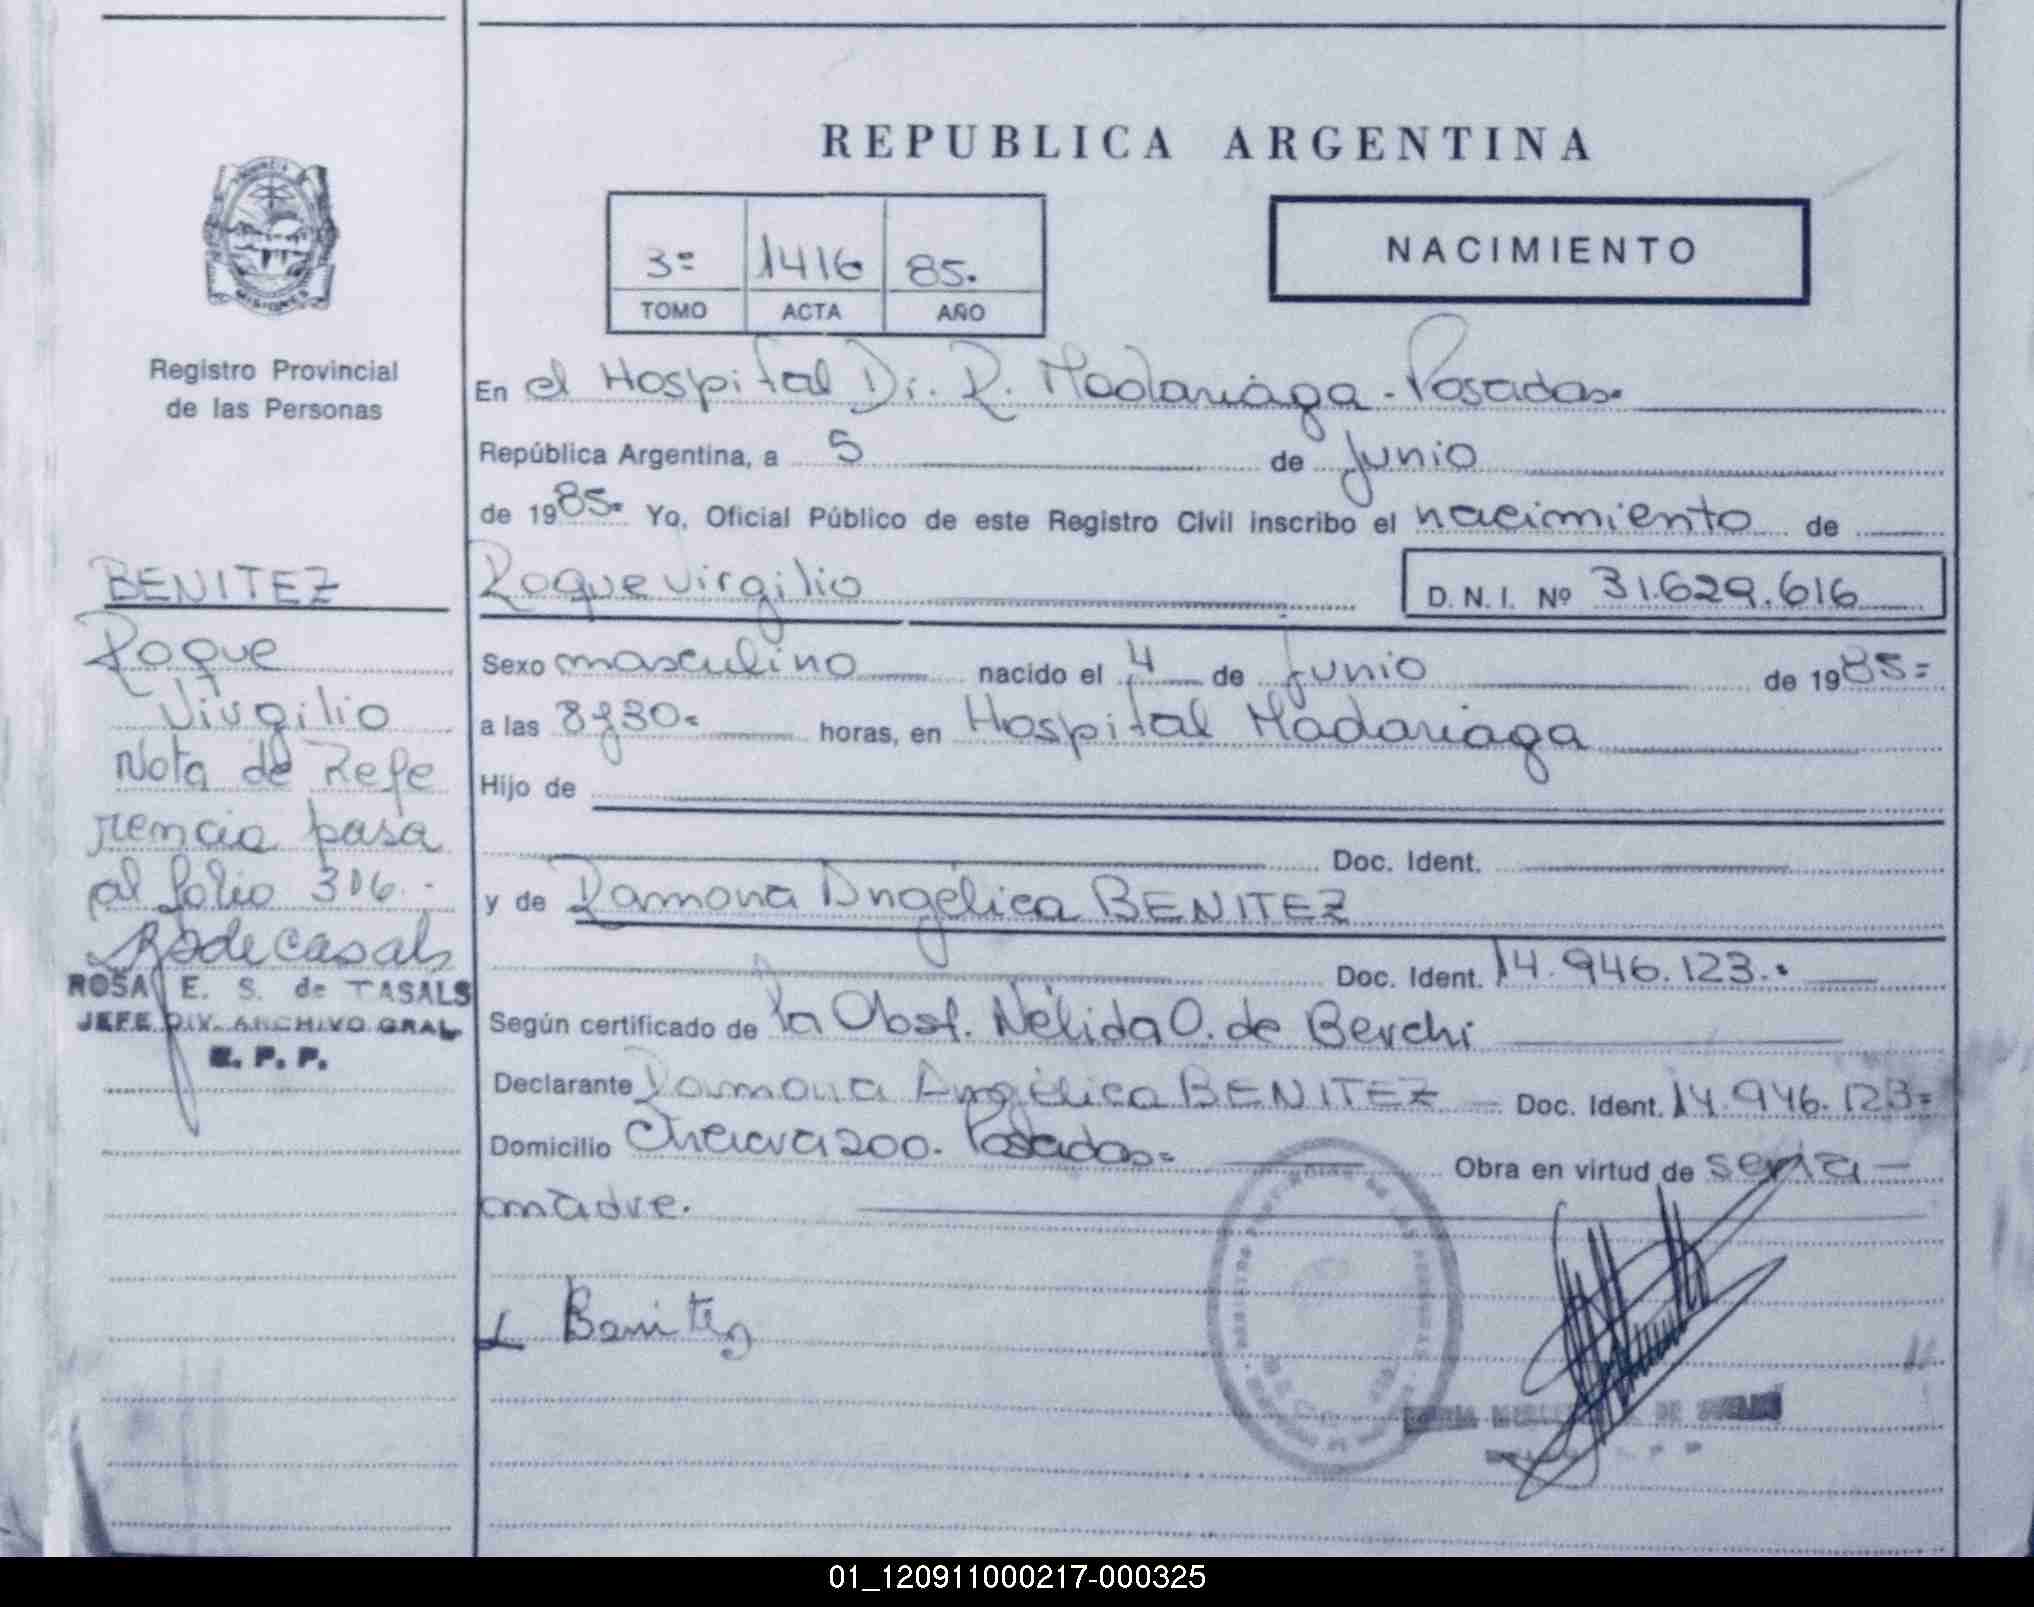 REPUBLICA ARGENTINA
3º 1416 85.
TOMO ACTA AÑO
NACIMIENTO
MISIONES
Registro Provincial
de las Personas
BENITEZ
Roque
Virgilio
Nota de Refe
rencia pasa
al folio 306.-
R de Casals
ROSA E. S. de CASALS
JEFE DIV. ARCHIVO GRAL
R. P. P.
En el Hospital Dr. R. Madariaga - Posadas.
República Argentina, a 5 de junio
de 1985= Yo, Oficial Público de este Registro Civil inscribo el nacimiento de
Roque Virgilio D. N. I. Nº 31.629.616
Sexo masculino nacido el 4 de junio de 1985=
a las 8 y 30= horas, en Hospital Madariaga
Hijo de
Doc. Ident.
y de Ramona Angélica BENITEZ
Doc. Ident. 14.946.123.
Según certificado de la Obst. Nélida O. de Berchi
Declarante Ramona Angélica BENITEZ Doc. Ident. 14.946.123=
Domicilio 200. Posadas= Obra en virtud de ser la
madre.
Benitez
01_120911000217-000325